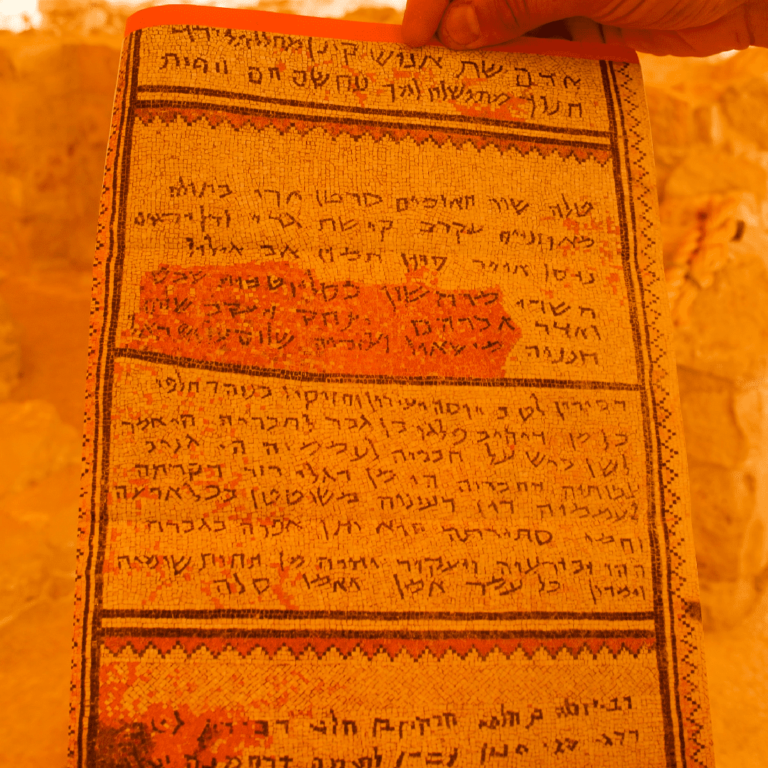 אדם שת אנוש קינן מהללאל ירד
חנוך מתושלח למך נח שם חם ויפת
טלה שור תאומים סרטן ארי בתולה
מאוזניים עקרב קשת גדי ודלי דגים
ניסן אייר סיון תמוז אב אילול
תשרי מרחשון כסליו טבית שבט
ואדר אברהם יצחק ויעקב שלום
חנניה מישאיל ועזריה שלום על ישראל
דכירין לטב יוסה ועירון וחזיקיו בנוה דחלפי
כל מן דיהיב פלגו בן גבר לחבריה הי אמר
לשן ביש על חבריה לעממיה הי גניב
צבותיה דחבריה הי מן דגלי רזה דקרתה
לעממיה דין דעינוה משוטטן בכל ארעה
וחמי סתירתה הוא יתן אפוה בגברה
ההו ובזרעיה ויעקור יתיה מן תחות שומיה
וימרון כל עמה אמן ואמן סלה
רבי יוסה בן חלפי חזקיו בן חלפי דכירין לטב
סגי הנון עבדו לשמה דרחמנה